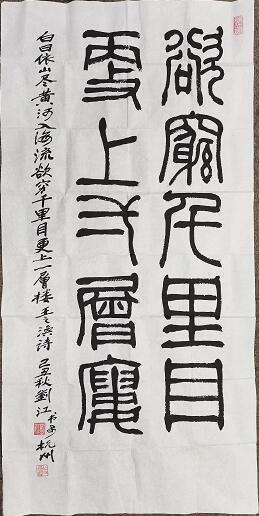 欲窮千里目
更上弌層廔
白日依山尽黄河入海流欲穷千里目更上一層楼王之涣诗己丑秋劉江书于杭州